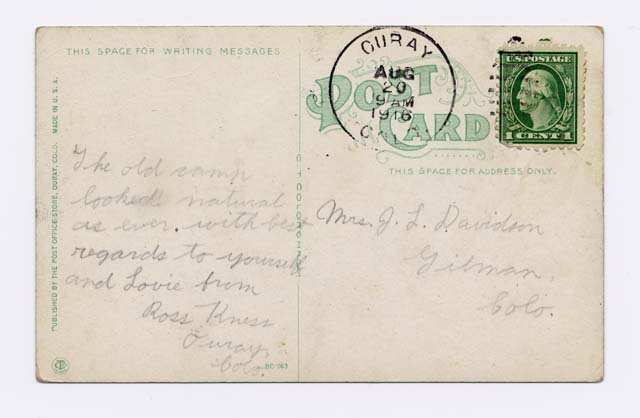 THIS SPACE FOR WRITING MESSAGES
OURAY
AUG
20
9 AM
1916
COLO.
POST
CARD
U.S. POSTAGE
1 CENT 1
THIS SPACE FOR ADDRESS ONLY.
PUBLISHED BY THE POST OFFICE STORE, OURAY, COLO. MADE IN U.S.A.
The old camp
looked natural
as ever. with best
regards to yourself
and Lovie from
Ross Kness
Ouray,
Colo.
Mrs. J. L. Davidson
Gilman,
Colo.